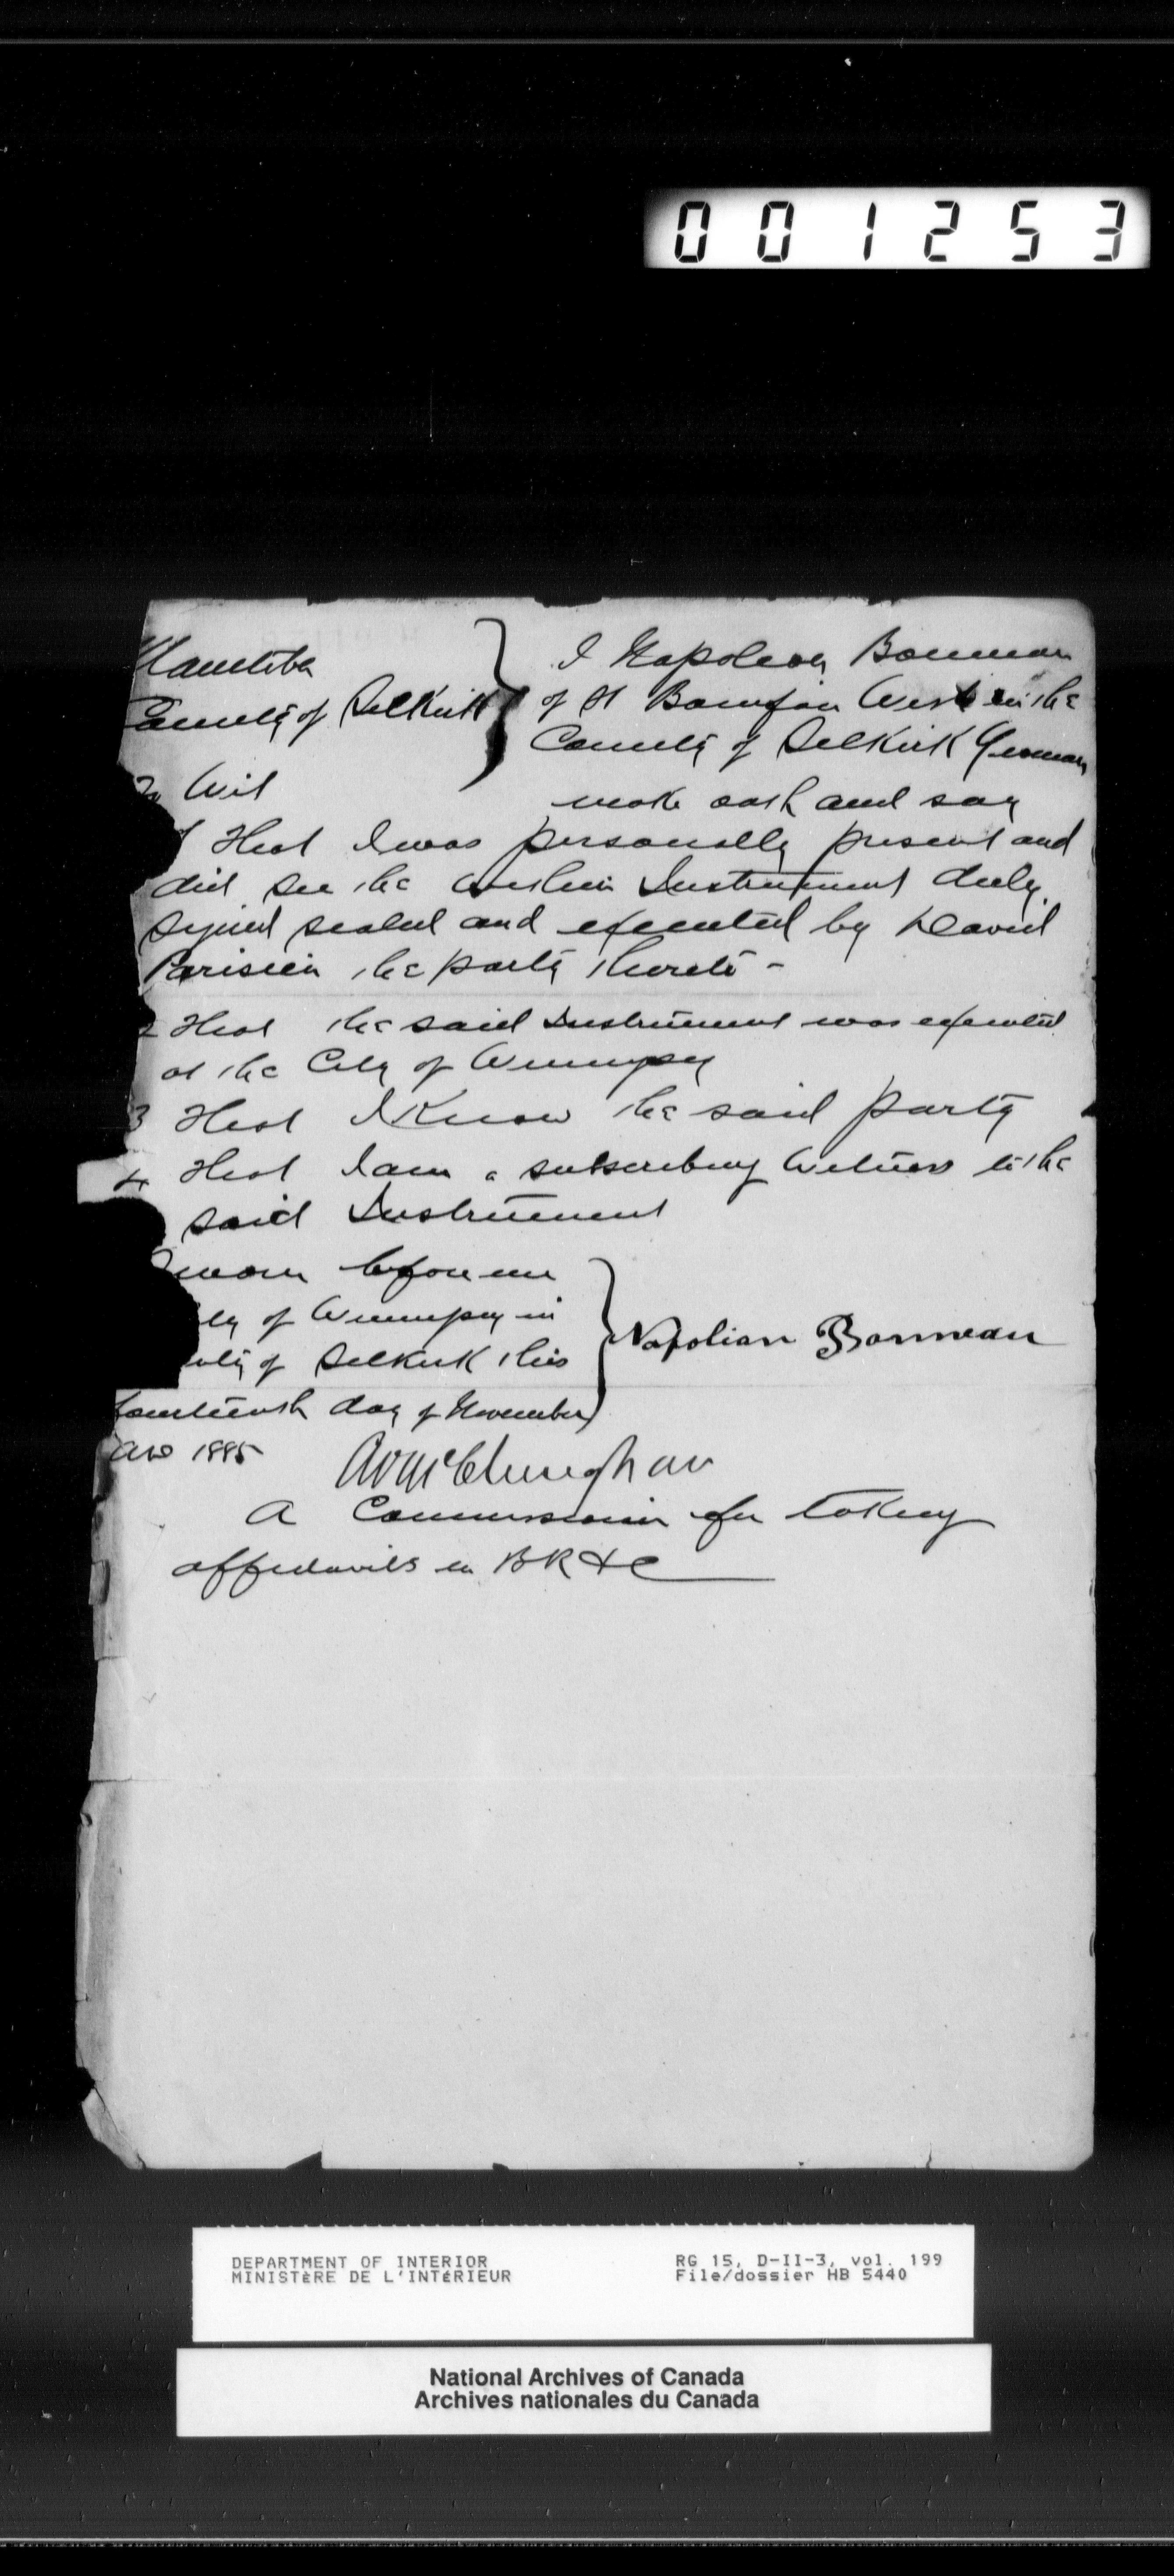 001253
Manitoba
County of Selkirk
To Wit
I Napoleon Bonneau
of St Boniface West in the
County of Selkirk Yeoman
make oath and say
1 That I was personally present and
did see the within Instrument duly
signed sealed and executed by David
Parisien the party thereto -
2 That the said Instrument was executed
at the City of Winnipeg
3 That I Know the said party
4 That I am a subscribing Witness to the
said Instrument
Sworn before me
ity of Winnipeg in
unty of Selkirk this
fourteenth day of November
AD 1885
Napolian Bonneau
A Commissioner for taking
affidavits in BR &c
DEPARTMENT OF INTERIOR
MINISTÈRE DE L'INTÉRIEUR
RG 15, D-II-3, vol. 199
File/dossier HB 5440
National Archives of Canada
Archives nationales du Canada